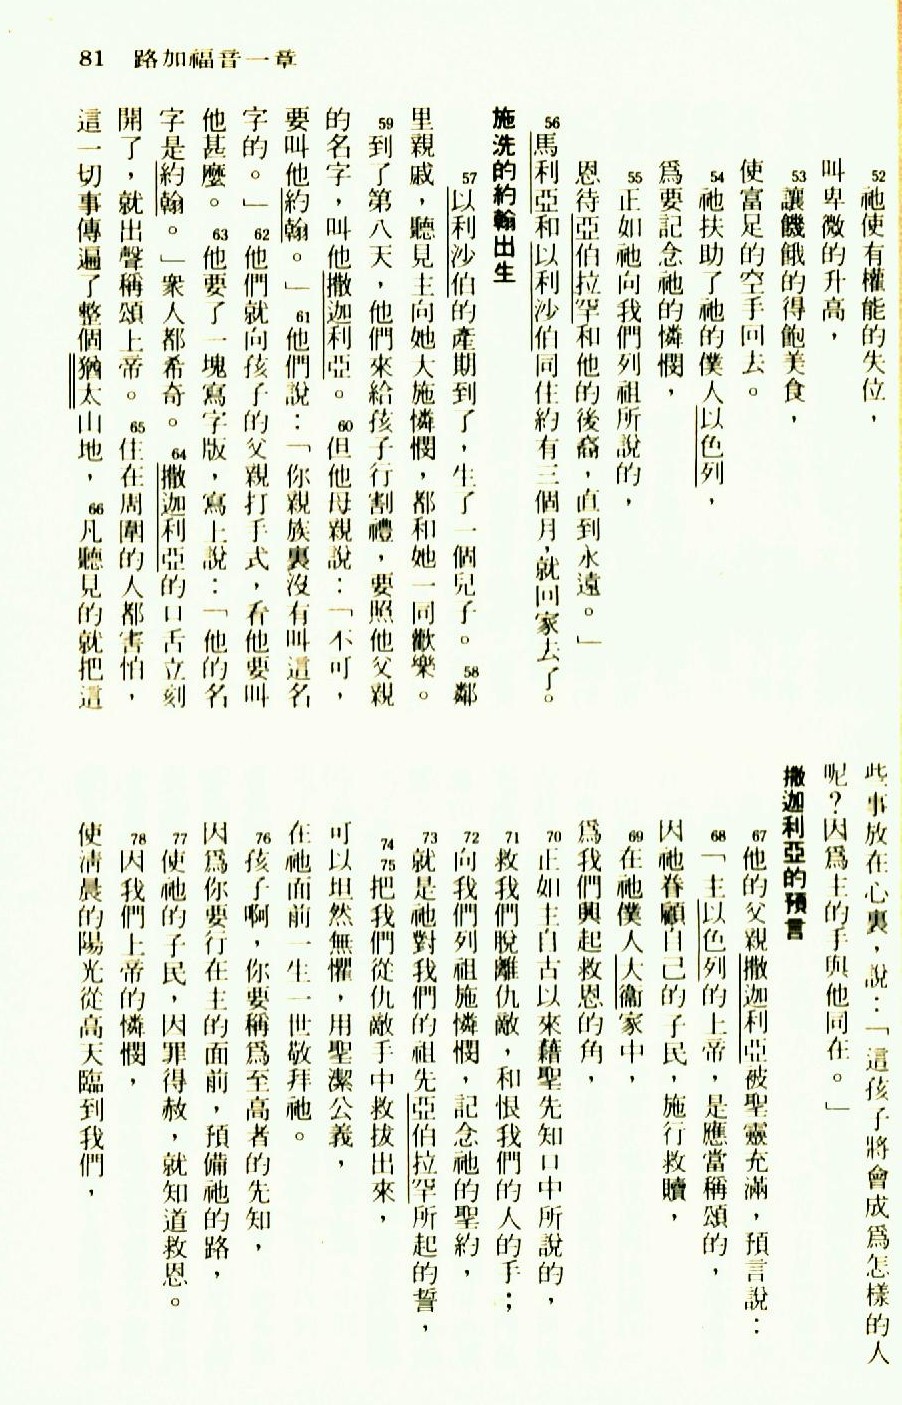 81 路加福音一章
52祂使有權能的失位，
叫卑微的升高，
53讓饑餓的得飽美食，
使富足的空手回去。
54祂扶助了祂的僕人以色列，
爲要記念祂的憐憫，
55正如祂向我們列祖所說的，
恩待亞伯拉罕和他的後裔，直到永遠。」
56馬利亞和以利沙伯同住約有三個月，就回家去了。
施洗的約翰出生
57以利沙伯的產期到了，生了一個兒子。58鄰
里親戚，聽見主向她大施憐憫，都和她一同歡樂。
59到了第八天，他們來給孩子行割禮，要照他父親
的名字，叫他撒迦利亞。60但他母親說：「不可，
要叫他約翰。」61他們說：「你親族裏沒有叫這名
字的。」62他們就向孩子的父親打手式，看他要叫
他甚麼。63他要了一塊寫字版，寫上說：「他的名
字是約翰。」衆人都希奇。64撒迦利亞的口舌立刻
開了，就出聲稱頌上帝。65住在周圍的人都害怕，
這一切事傳遍了整個猶太山地，66凡聽見的就把這
些事放在心裏，說：「這孩子將會成爲怎樣的人
呢？因爲主的手與他同在。」
撒迦利亞的預言
67他的父親撒迦利亞被聖靈充滿，預言說：
68「主以色列的上帝，是應當稱頌的，
因祂眷顧自己的子民，施行救贖，
69在祂僕人大衞家中，
爲我們興起救恩的角，
70正如主自古以來藉聖先知口中所說的，
71救我們脫離仇敵，和恨我們的人的手；
72向我們列祖施憐憫，記念祂的聖約，
73就是祂對我們的祖先亞伯拉罕所起的誓，
74 75把我們從仇敵手中救拔出來，
可以坦然無懼，用聖潔公義，
在祂面前一生一世敬拜祂。
76孩子啊，你要稱爲至高者的先知，
因爲你要行在主的面前，預備祂的路，
77使祂的子民，因罪得赦，就知道救恩。
78因我們上帝的憐憫，
使清晨的陽光從高天臨到我們，